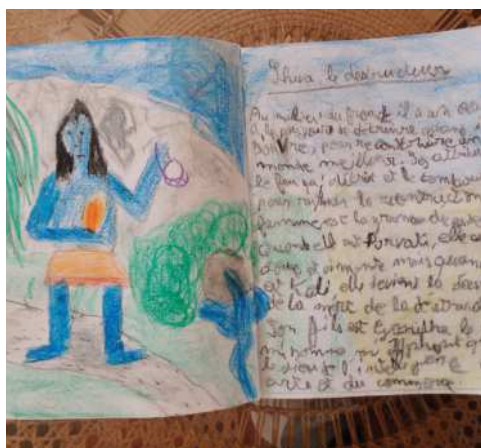 Shiva le destructeur
Au milieu du front il a un
a le pouvoir de détruire quand
pour reconstruire un
monde meilleur. Ses attributs
le feu qui détruit et le tambour
pour la reconstruction
femme est la grande déesse
quand elle est Parvati, elle est
douce et aimante mais quand
est Kali elle devient la déesse
de la mort de la destruction
Son fils est Ganesha le
mi homme mi
le dieu de l'intelligence
arts et du commerce.